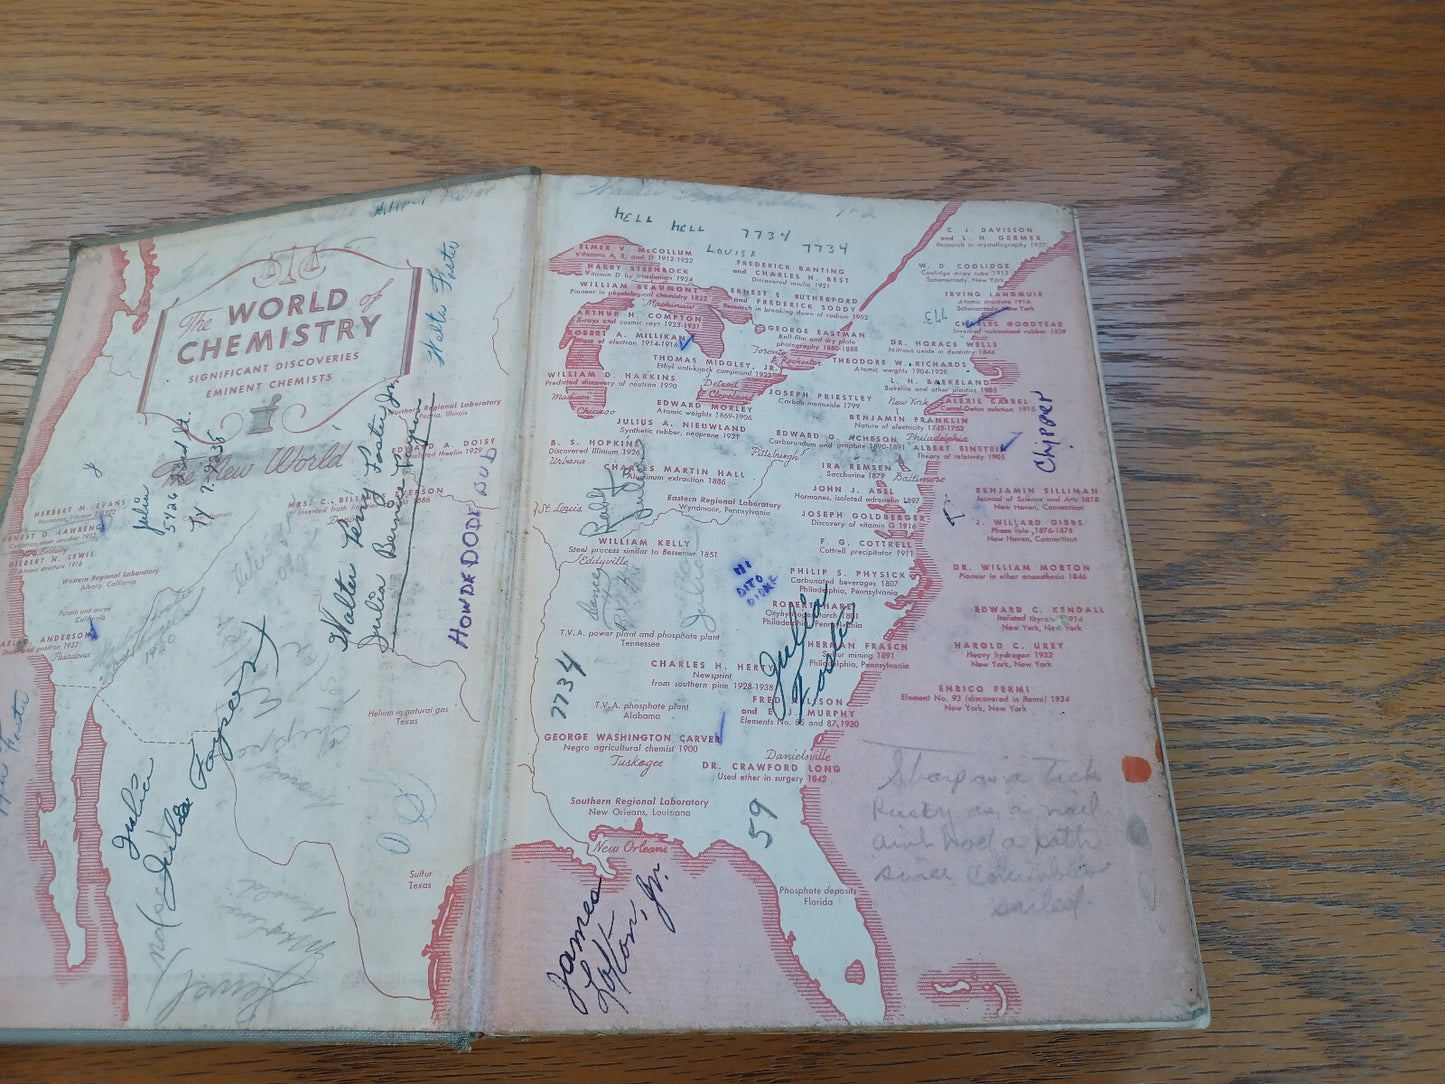 The WORLD of
CHEMISTRY
SIGNIFICANT DISCOVERIES
EMINENT CHEMISTS
The New World
Walter Foster
Northern Regional Laboratory
Peoria, Illinois
EDWARD A. DOISY
Isolated theelin 1929
HERBERT M. EVANS
ERNEST D. LAWRENCE
GILBERT N. LEWIS
Atomic structure 1916
Western Regional Laboratory
Albany, California
Potash and borax
California
CARL D. ANDERSON
Discovered positron 1932
Pasadena
Julia
Walter Perry Foster, Jr.
Julia Bernice
HOWDEDODE BUD
Helium in natural gas
Texas
Julia
Julia
Sulfur
Texas
HELL HELL 7734 7734
LOUISE
ELMER V. McCOLLUM
Vitamins A, B, and D 1912-1922
HARRY STEENBOCK
Vitamin D by irradiation 1924
WILLIAM BEAUMONT
Pioneer in physiological chemistry 1822
Mackinaw
ARTHUR H. COMPTON
X-rays and cosmic rays 1923-1931
ROBERT A. MILLIKAN
Mass of electron 1914-1916
THOMAS MIDGLEY, JR.
Ethyl anti-knock compound 1922
WILLIAM D. HARKINS
Predicted discovery of neutron 1920
Madison
Chicago
Detroit
Cleveland
FREDERICK BANTING
and CHARLES H. BEST
Discovered insulin 1921
ERNEST E. RUTHERFORD
and FREDERICK SODDY
Research in breaking down of radium 1902
GEORGE EASTMAN
Roll film and dry plate
photography 1880-1888
Toronto
Rochester
C. J. DAVISSON
and L. H. GERMER
Research in crystallography 1927
W. D. COOLIDGE
Coolidge x-ray tube 1913
Schenectady, New York
IRVING LANGMUIR
Atomic structure 1916
Schenectady, New York
773
CHARLES GOODYEAR
Invented vulcanized rubber 1839
DR. HORACE WELLS
Nitrous oxide in dentistry 1844
THEODORE W. RICHARDS
Atomic weights 1904-1928
L. H. BAEKELAND
Bakelite and other plastics
New York
ALEXIS CARREL
Carrel-Dakin solution 1915
Chipper
EDWARD MORLEY
Atomic weights 1869-1906
JOSEPH PRIESTLEY
Carbon monoxide 1799
BENJAMIN FRANKLIN
Nature of electricity 1745-1752
Philadelphia
JULIUS A. NIEUWLAND
Synthetic rubber, neoprene 1931
EDWARD G. ACHESON
Carborundum and graphite 1890-1891
ALBERT EINSTEIN
Theory of relativity 1905
B. S. HOPKINS
Discovered Illinium 1926
Urbana
Pittsburgh
CHARLES MARTIN HALL
Aluminum extraction 1886
IRA REMSEN
Saccharine 1879
Baltimore
JOHN J. ABEL
Hormones, isolated adrenalin 1897
BENJAMIN SILLIMAN
Journal of Science and Arts 1818
New Haven, Connecticut
St. Louis
Eastern Regional Laboratory
Wyndmoor, Pennsylvania
JOSEPH GOLDBERGER
Discovery of vitamin G 1916
J. WILLARD GIBBS
Phase rule, 1876-1878
New Haven, Connecticut
WILLIAM KELLY
Steel process similar to Bessemer 1851
Eddyville
F. G. COTTRELL
Cottrell precipitator 1911
DR. WILLIAM MORTON
Pioneer in ether anaesthesia 1846
HI
DITO
PHILIP S. PHYSICK
Carbonated beverages 1807
Philadelphia, Pennsylvania
ROBERT HARE
Oxyhydrogen torch 1801
Philadelphia, Pennsylvania
EDWARD C. KENDALL
Isolated thyroxin 1914
New York, New York
Julia
T.V.A. power plant and phosphate plant
Tennessee
HERMAN FRASCH
Sulfur mining 1891
Philadelphia, Pennsylvania
HAROLD C. UREY
Heavy hydrogen 1932
New York, New York
Julia
Foster
7734
CHARLES H. HERTY
Newsprint
from southern pine 1928-1938
ENRICO FERMI
Element No. 93 (discovered in Rome) 1934
New York, New York
T.V.A. phosphate plant
Alabama
FRED ALLISON
and E. J. MURPHY
Elements No. 85 and 87, 1930
GEORGE WASHINGTON CARVER
Negro agricultural chemist 1900
Tuskegee
Danielsville
DR. CRAWFORD LONG
Used ether in surgery 1842
Southern Regional Laboratory
New Orleans, Louisiana
59
New Orleans
Phosphate deposits
Florida
James
Lofton, Jr.
Sharp as a tack
Rusty as a nail
ain't had a bath
since Columbus
sailed